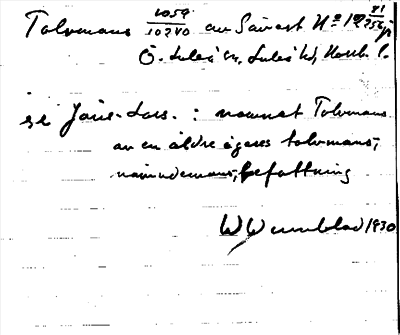 Tolvmans 1059/10240 av Säivest No 12
Ö. Luleå sn, Luleå td, Norrb. l.
se Jöns-Lars. : namnet Tolvmans
av en äldre ägares tolvmans-,
nämndemans-befattning
W Wennblad 1930